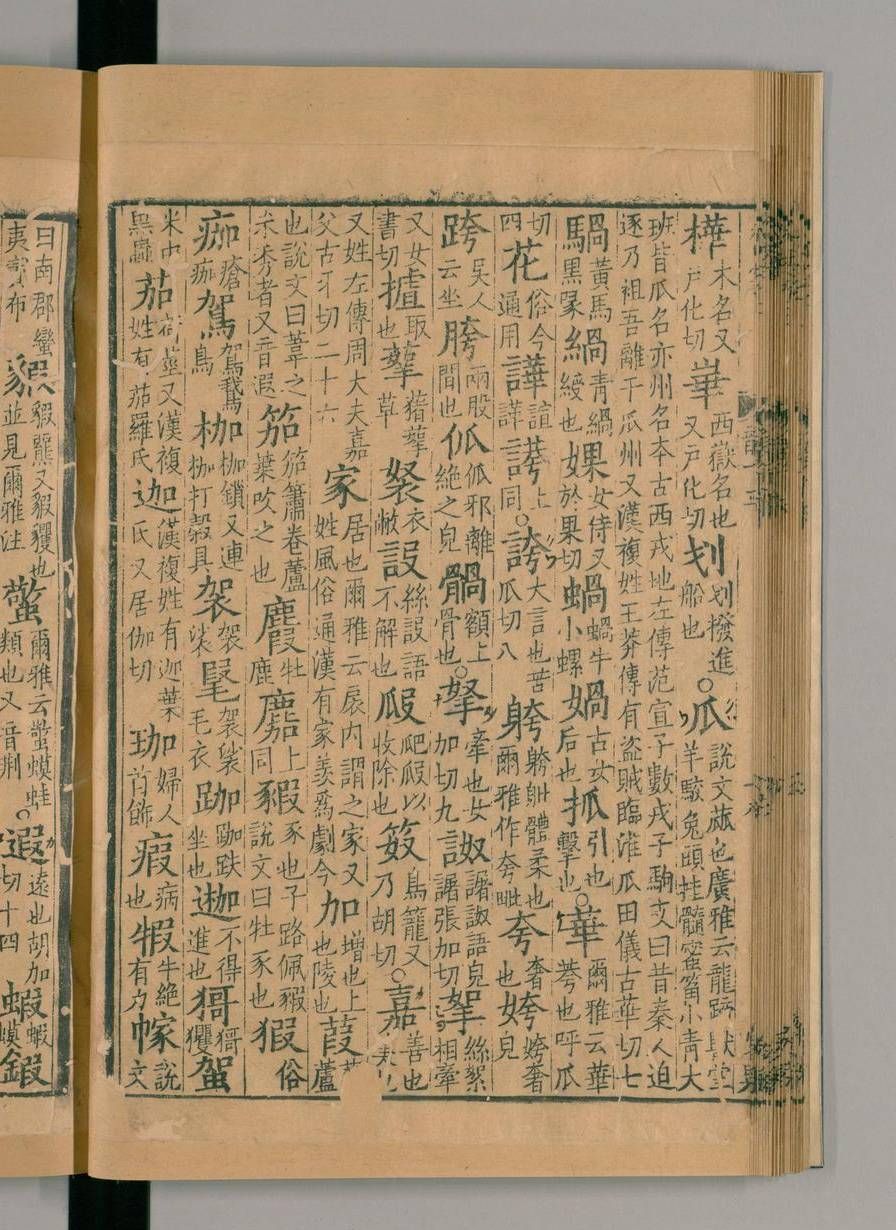 樺木名又戶化切華西嶽名也又戶化切划划撥進船也○瓜說文蓏也廣雅云龍蹄獸掌羊駮兔頭桂髓蜜筩小青大
班皆瓜名亦州名本古西戎地左傳范宣子數戎子駒支曰昔秦人迫逐乃祖吾離于瓜州又漢複姓王莽傳有盜賊臨淮瓜田儀古華切七
騧黃馬黑喙緺青緺綬也婐女侍又於果切蝸蝸牛小螺媧古女后也抓引也擊也○華爾雅云華荂也呼瓜
切四花俗今通用譁諠譁誇上同○誇大言也苦瓜切八體柔也爾雅作夸毗夸奢也姱姱奢皃
跨吳人云坐胯兩股間也㐓㐓邪離絕之皃䯞額上骨也○拏牽也女加切九詉譇詉語皃譇張加切挐絲絮相牽
又女書切取也草衣敝絲語不解也以收除也笯鳥籠又乃胡切○嘉善也美也
又姓左傳周大夫嘉父古牙切二十六家居也爾雅云扆內謂之家又姓風俗通漢有家羨爲劇令加增也上也陵也葭蘆
也說文曰葦之未秀者又音遐笳笳簫卷蘆葉吹之也麚牡鹿上同豭豕也子路佩豭說文曰牡豕也猳俗
痂瘡痂鴐鴐鵝鳥枷枷鎖又連枷打穀具袈袈裟毠袈裟毛衣跏跏趺坐也不得進也玃駕
米中黑蟲茄荷莖又漢複姓有茄羅氏迦漢複姓有迦葉氏又居伽切珈婦人首飾瘕病也犌牛絕有力幏說文
曰南郡蠻夷賨布貑貑羆又貑玃也並見爾雅注爾雅云蟆蛙類也又音荊○遐遠也胡加切十四蝦蝦蟆鍜